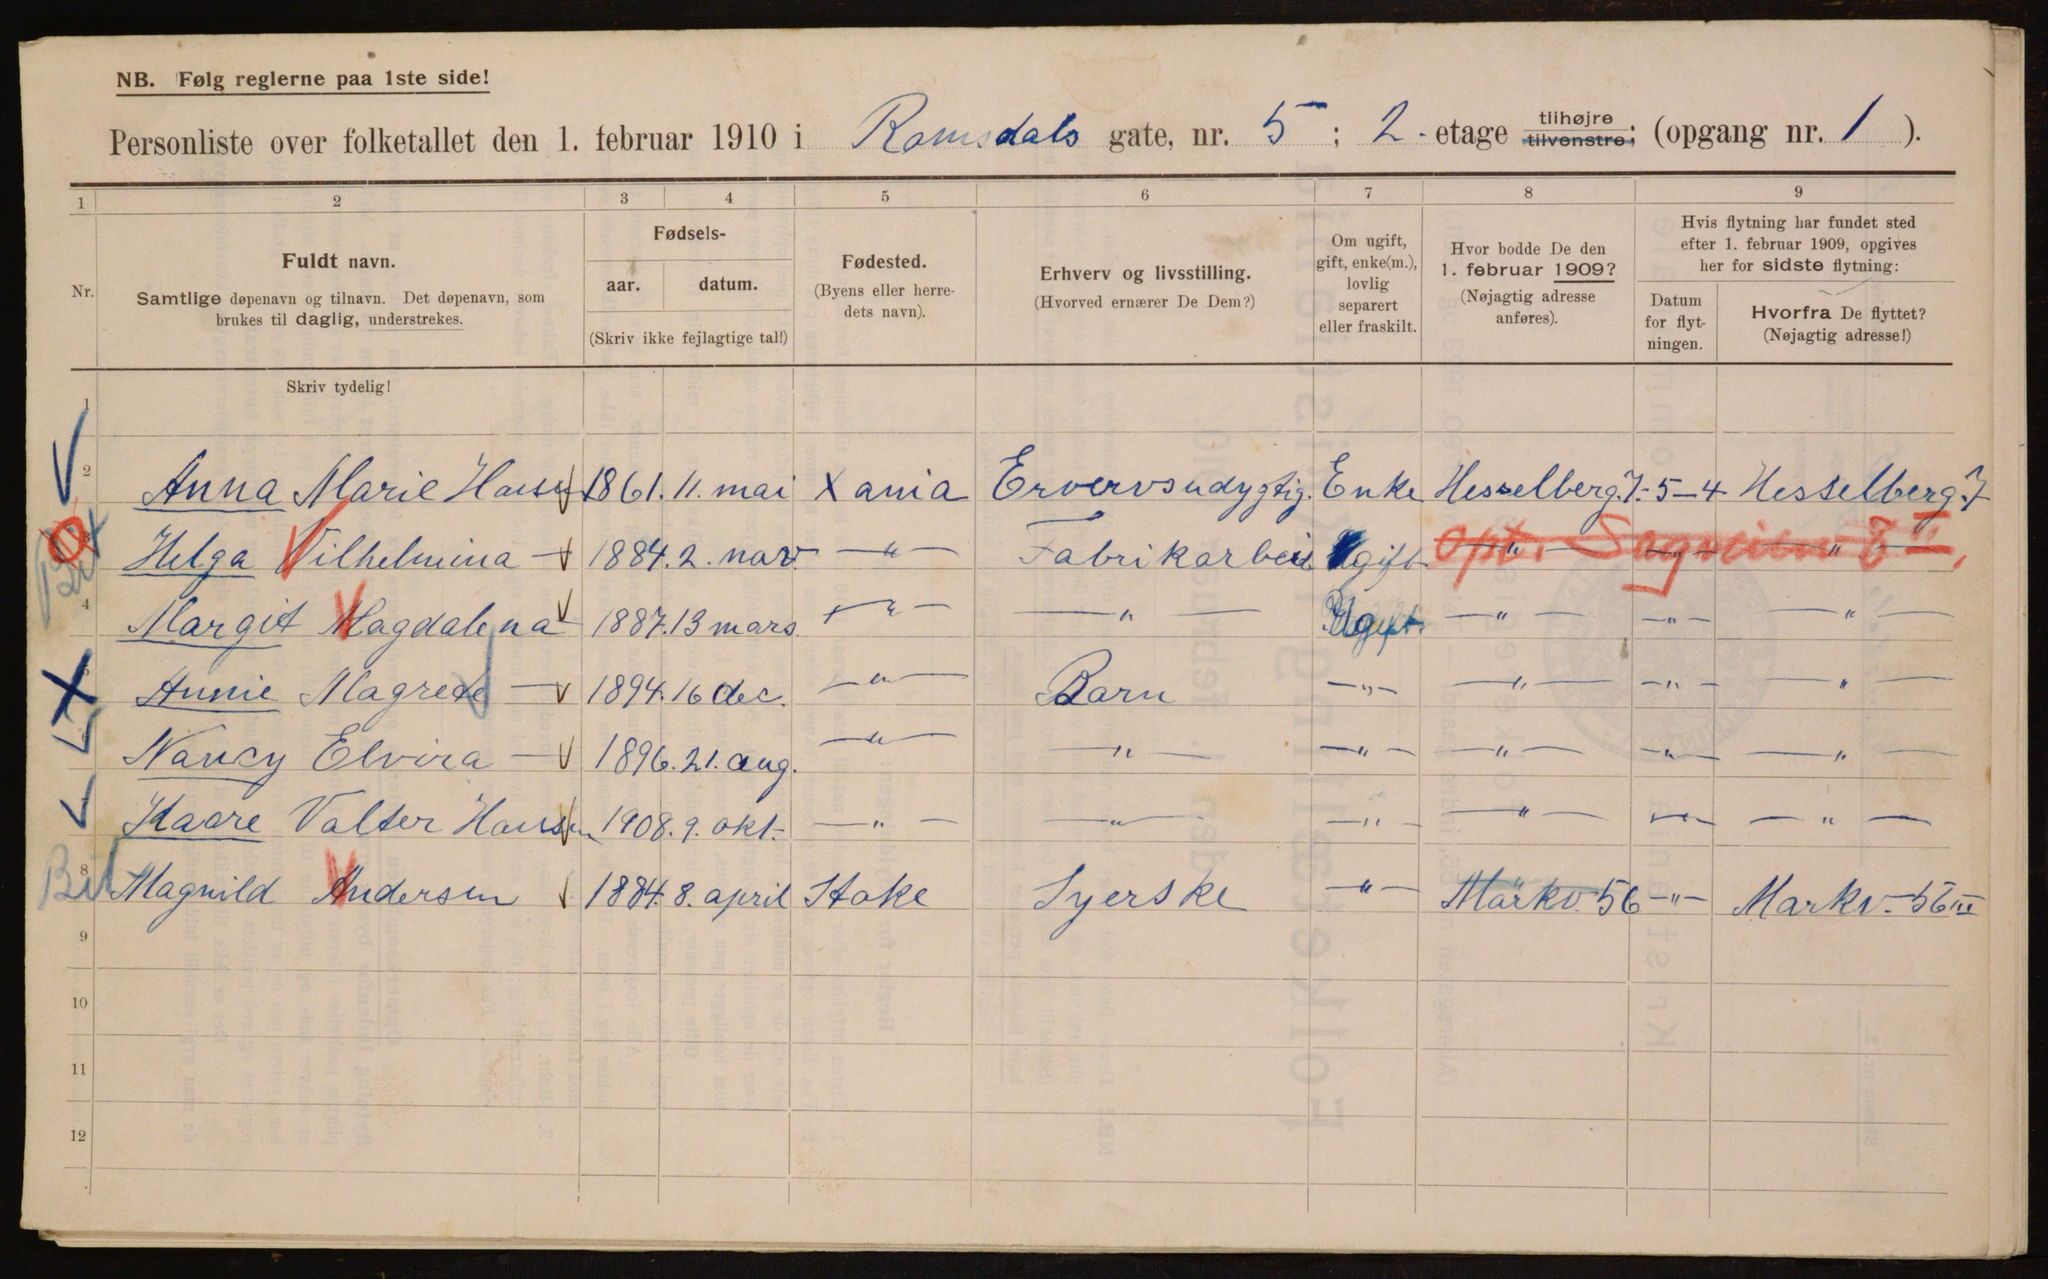 NB. Følg reglerne paa 1ste side!
Personliste over folketallet den 1. februar 1910 i Romsdals gate, nr. 5 ; 2 etage tilhøjre tilvenstre; (opgang nr. 1 ).
1 2 3 4 5 6 7 8 9
Nr.
Fuldt navn.
Samtlige døpenavn og tilnavn. Det døpenavn, som
brukes til daglig, understrekes.
Fødsels-
aar. datum.
(Skriv ikke fejlagtige tal!)
Fødested.
(Byens eller herre-
dets navn).
Erhverv og livsstilling.
(Hvorved ernærer De Dem?)
Om ugift,
gift, enke(m.),
lovlig
separert
eller fraskilt.
Hvor bodde De den
1. februar 1909?
(Nøjagtig adresse
anføres).
Hvis flytning har fundet sted
efter 1. februar 1909, opgives
her for sidste flytning:
Datum
for flyt-
ningen.
Hvorfra De flyttet?
(Nøjagtig adresse!)
Skriv tydelig!
1
2 Anna Marie Hansen 1861. 11. mai Xania Ervervsudygtig. Enke Hesselberg. 7. 5-4 Hesselberg. 7
3 Helga Vilhelmina — 1884. 2. nov. —„— Fabrikarbeid Ugift —„— —„— —„—
opt. Sagveien 8 II.
4 Margit Magdalena 1887. 13 mars. —„— —„— Ugift. —„— —„— —„—
5 Annie Magrete — 1894. 16 dec. —„— Barn —„— —„— —„— —„—
Nancy Elvira — 1896. 21. aug. —„— —„— —„— —„— —„— —„—
Kaare Valter Hansen 1908. 9. okt. —„— —„— —„— —„— —„— —„—
8 Magnild Andersen 1884. 8. april Stoke Syerske —„— Markv. 56 —„— Markv. 56 III
9
10
11
12